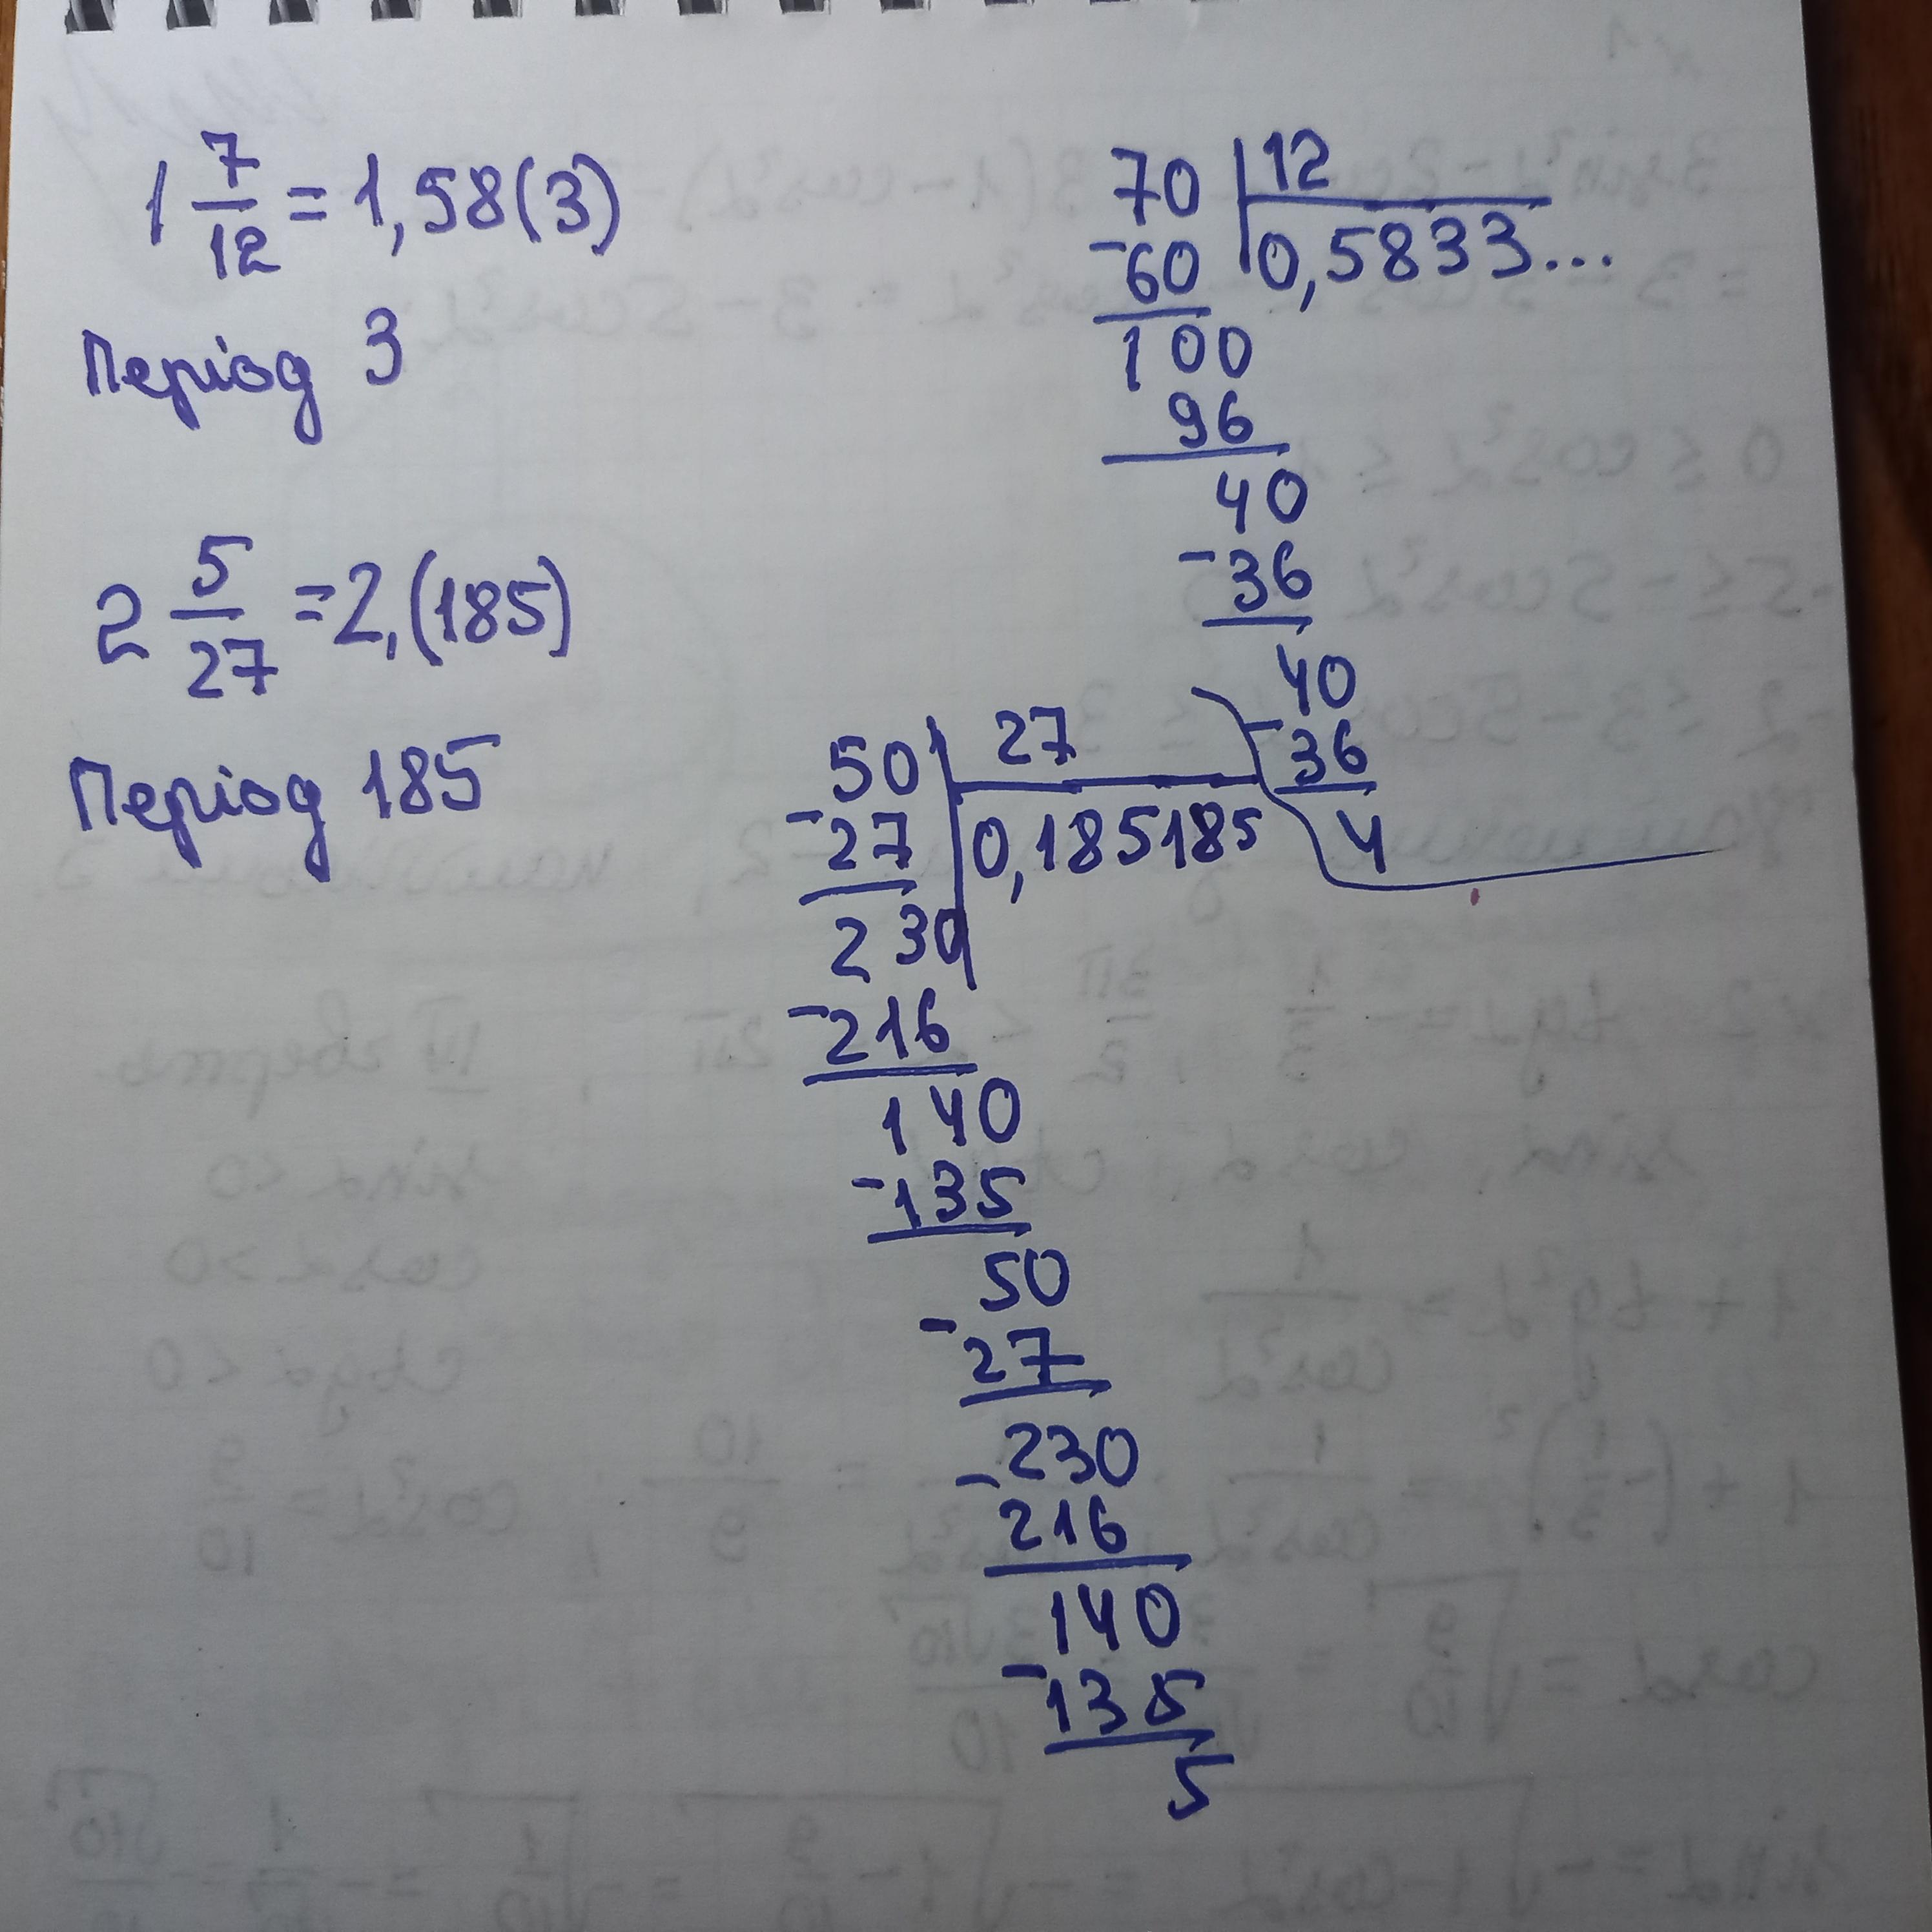 1 7/12 = 1,58(3)
Період 3
2 5/27 = 2,(185)
Період 185
70 | 12
-60 | 0,5833...
100
96
40
-36
40
-36
4
50 | 27
-27 | 0,185185
230
-216
140
-135
50
-27
230
-216
140
-135
5